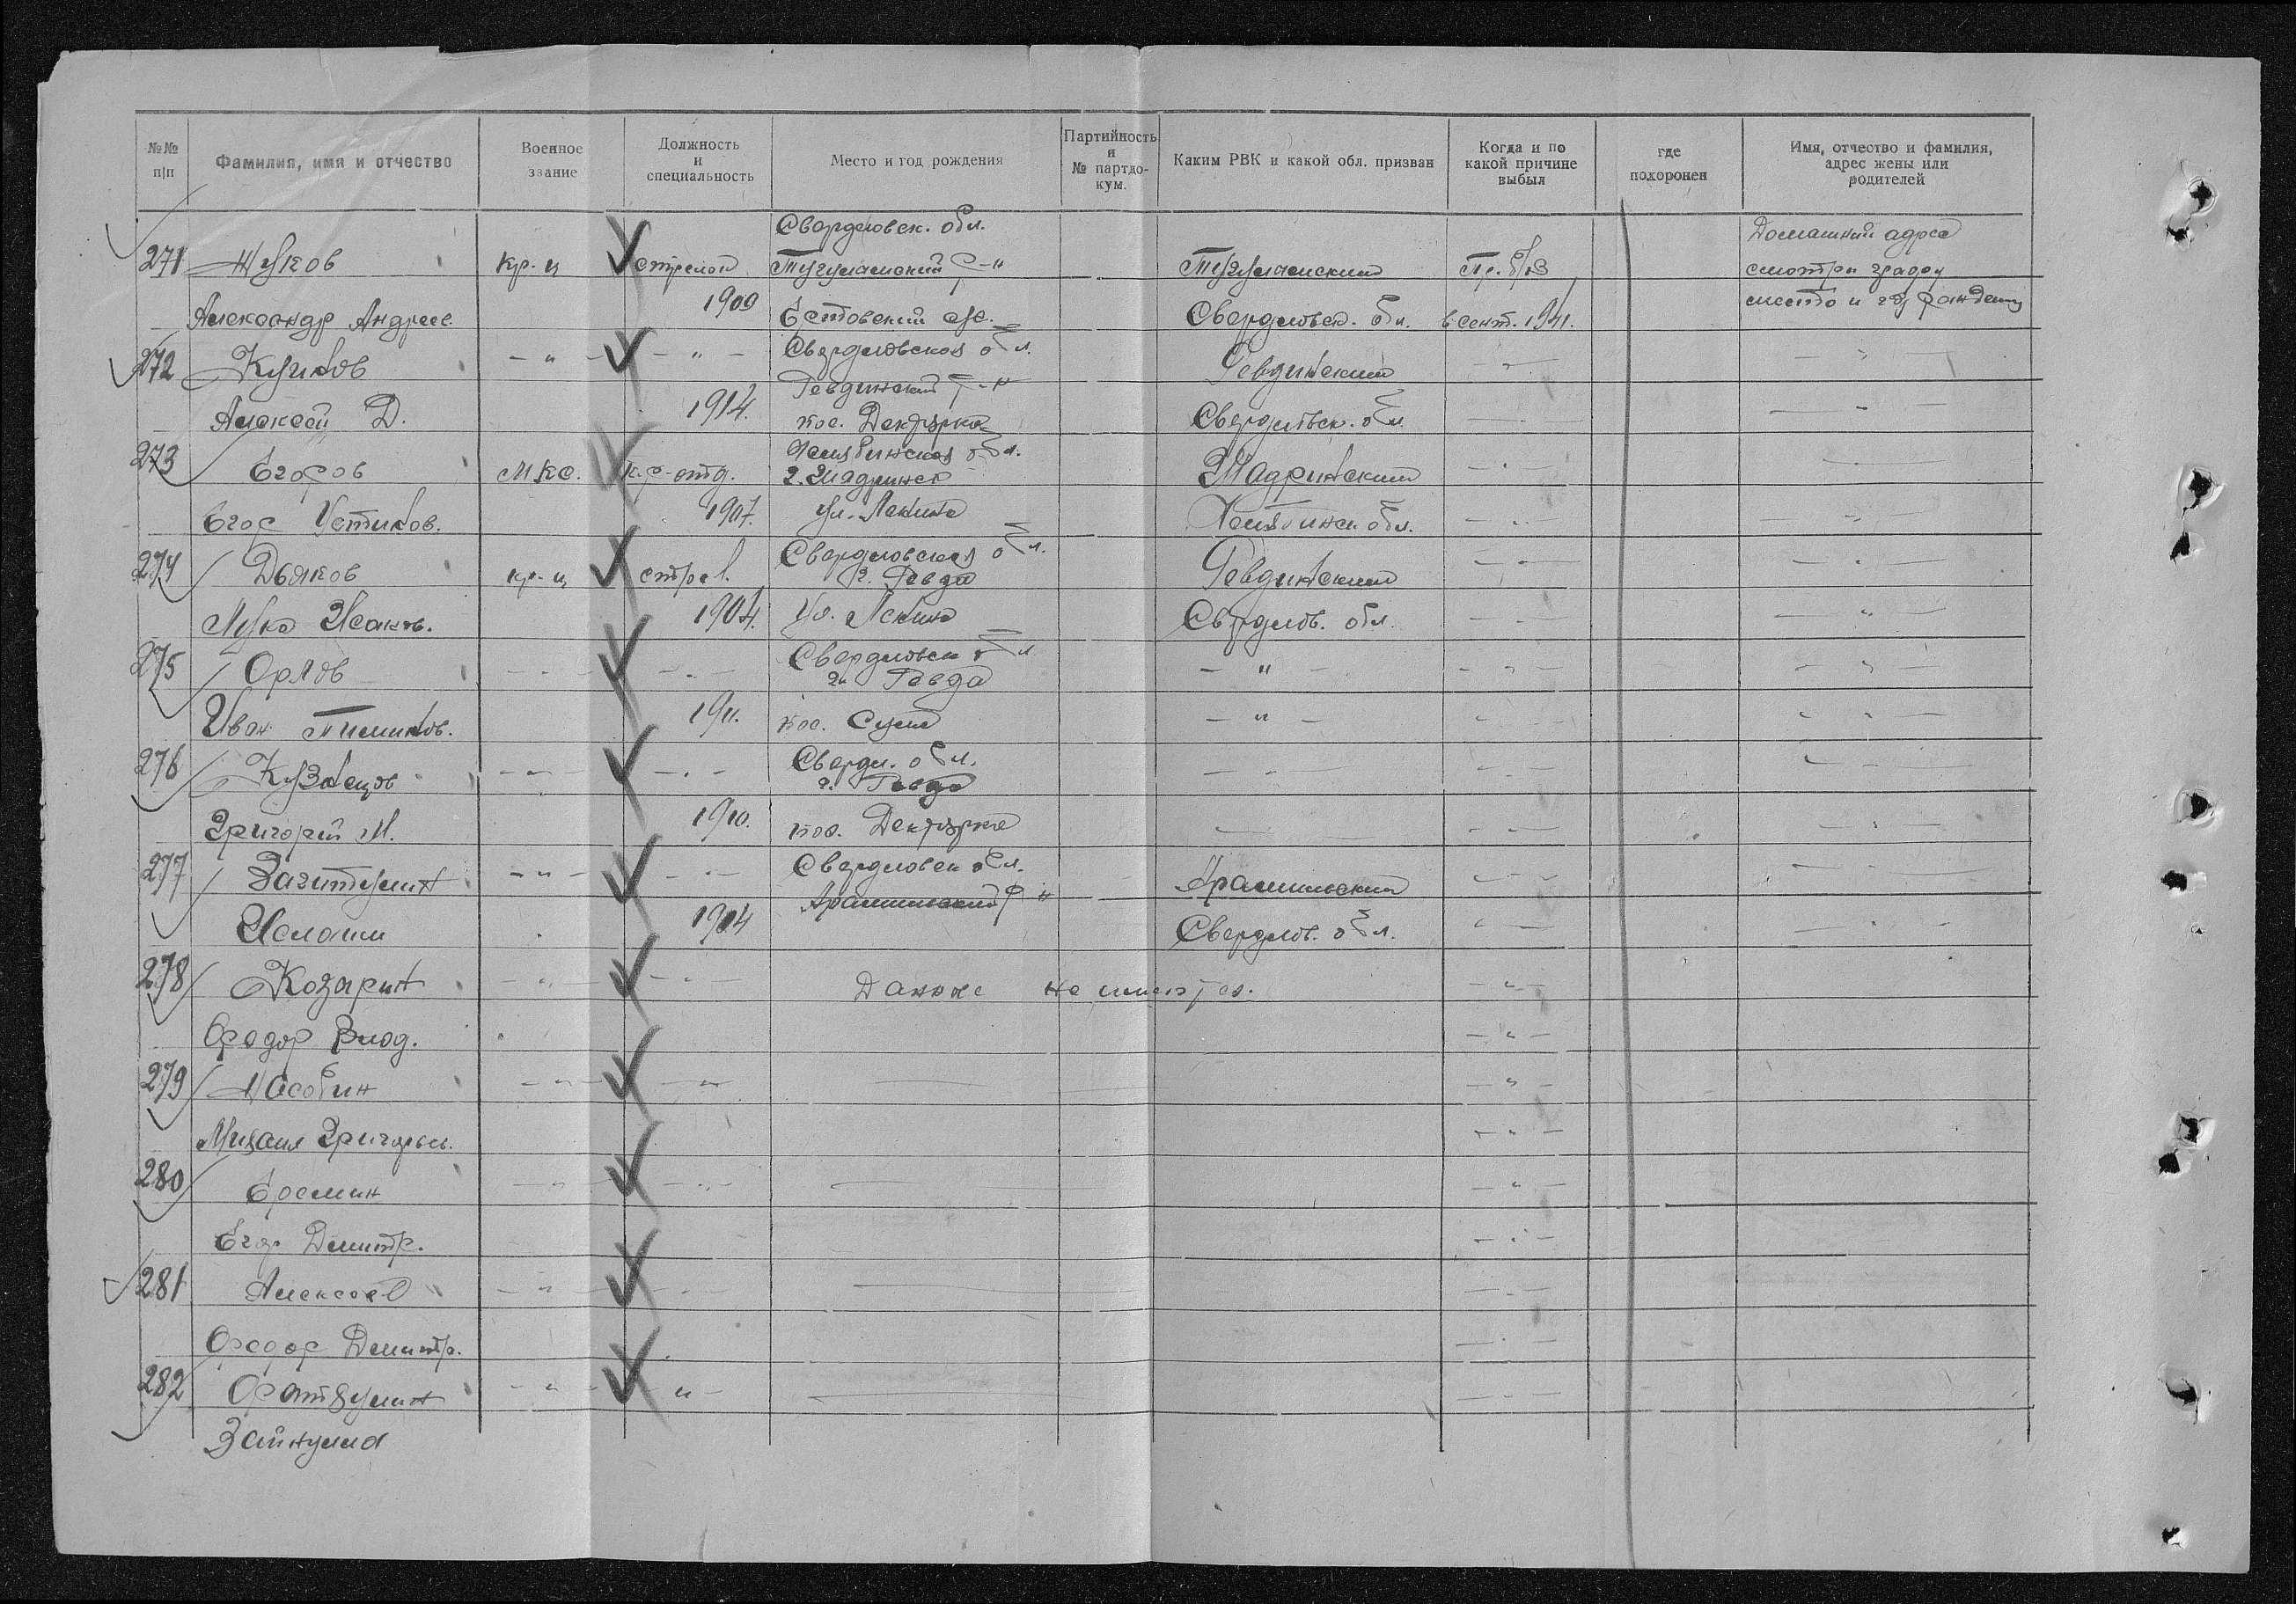 №№ п/п
Фамилия, имя и отчество
Военное звание
Должность и специальность
Место и год рождения
Партийность и № партдокум.
Каким РВК и какой обл. призван
Когда и по какой причине выбыл
где похоронен
Имя, отчество и фамилия, адрес жены или родителей
Свердловск. обл. Домашний адрес
271 Жуков кр-ц стрелок Тугулымский р-н Тугулымский Пр. б/в смотри графу
Александр Андреев. 1909 Свердловск. обл. в сент. 1941. место и год рождения
272 Куликов — " — — " — Свердловская обл. Ревдинский — " — — " —
Ревдинский р-н
Алексей Д. 1914. пос. Дегтярка Свердловск. обл. — " —
Челябинская обл.
273 Егоров МКС. г. Шадринск Шадринский — " —
Егор Устинов. 1907. ул. Ленина Челябинск обл. — " — — " —
Свердловская обл.
274 Дьяков кр-ц стрел. г. Ревда Ревдинский — " — — " —
Лука Исаков. 1904. Ул. Ленина Свердлов. обл. — " — — " —
Свердловск обл
275 Орлов — " — — " — г. Ревда — " — — " — — " —
Иван 1911. пос. — " — — " — — " —
Свердл. обл.
276 Кузнецов — " — — " — г. Ревда — " — — " — — " —
Григорий М. 1910. пос. Дегтярка — " — — " —
Свердловск обл.
277 Загитулин — " — — " — Арамильский р-н Арамильский — " — — " —
Ислам 1904 Свердлов. обл. — " — — " —
278 Козарин — " — — " — Данные не имеются. — " —
Федор Влад. — " —
279 — " — — " — — " —
Михаил Григорьев. — " —
280 Еремин — " — — " — — " —
Егор Дмитр. — " —
281 Алексеев — " — — " — — " —
Федор Дмитр. — " —
282 Фатхулин — " — " — — " —
Зайнулла